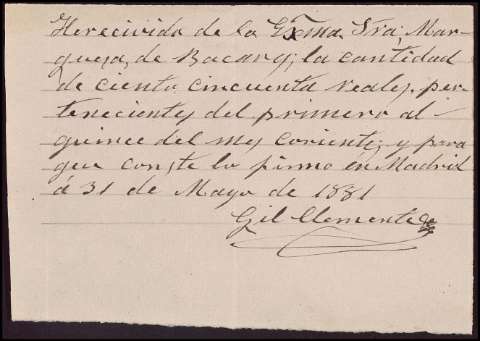 He recivido de la Exma Sra, Mar-
quesa, de Bacares, la cantidad
de ciento, cincuenta reales, per-
tenecientes del primero al
quince del mes coriente, y para
que conste lo firmo en Madrid
á 31 de Mayo de 1881
Gil Clemente